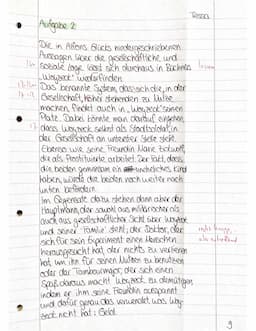 Tessa
Aufgabe 2
Die in Alfons Glücks niedergeschriebenen
Aussagen über die gesellschaftliche und
soziale Lage lässt sich durchaus in Büchners
„Woyzeck“ wiederfinden.
Das benannte System, dass sich die, in der
Gesellschaft, höher stehenden zu Nutze
machen, findet auch in „Woyzeck“ seinen
Platz. Dabei könnte man darauf eingehen,
dass Woyzeck selbst als Stadtsoldat, in
der Gesellschaft an unterster Stelle steht.
Ebenso wie seine Freundin Marie
die als Prostituierte arbeitet. Der Fakt, dass
die beiden gemeinsam ein uneheliches Kind
haben, würde die beiden noch weiter nach
unten befördern.
Im Gegensatz dazu stehen dann aber der
Hauptmann, der sowohl aus militärischer als
auch aus gesellschaftlicher Sicht über Woyzeck
und seiner "Familie" steht, der Doktor, der
sich für sein Experiment einen Menschen
herausgesucht hat, der nichts zu verlieren
hat um ihn für seinen Nutzen zu benutzen
oder der Tambourmajor, der sich einen
Spaß daraus macht Woyzeck zu demütigen
indem er ihm seine Freundin ausspannt
und dafür genau das verwendet was Woy-
zeck nicht hat: Geld.
9